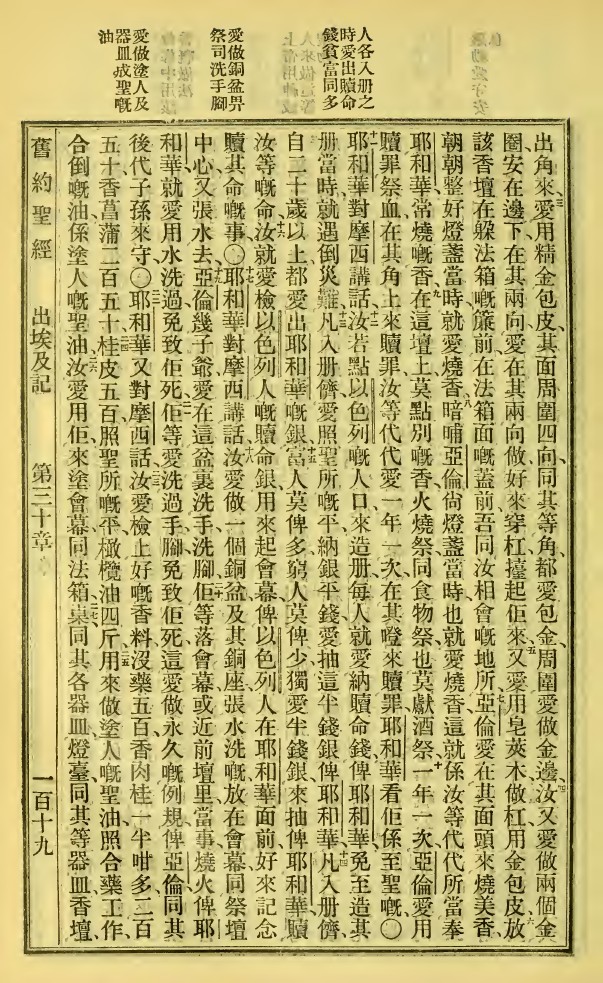 人各入册之
時愛出贖命
錢貧富同多
愛做銅盆畀
祭司洗手腳
愛做塗人及
器皿成聖嘅
油
出角來、愛用精金包皮、其面周圍四向、同其等角、都愛包金、周圍愛做金邊、汝又愛做兩個金
圈、安在邊下、在其兩向、愛在其兩向做好來穿杠擡起佢來、又愛用皂莢木做杠、用金包皮、放
該香壇在躲法箱嘅簾前、在法箱面嘅蓋前、吾同汝相會嘅地所、亞倫愛在其面頭來燒美香、
朝朝整好燈盞當時、就愛燒香、暗晡亞倫尙燈盞當時、也就愛燒香、這就係汝等代代所當奉
耶和華、常燒嘅香、在這壇上、莫點別嘅香、火燒祭、同食物祭、也莫獻酒祭、一年一次、亞倫愛用
贖罪祭血、在其角上來贖罪、汝等代代愛一年一次、在其嶝來贖罪、耶和華看佢係至聖嘅〇
耶和華對摩西講話、汝若點以色列嘅人口來造册、每人就愛納贖命錢俾耶和華、免至造其
册當時、就遇倒災難、凡入册儕、愛照聖所嘅平納銀半錢、愛抽這半錢銀俾耶和華、凡入册儕、
自二十歲以上、都愛出耶和華嘅銀、富人莫俾多、窮人莫俾少、獨愛半錢銀來抽俾耶和華、贖
汝等嘅命、汝就愛檢以色列人嘅贖命銀、用來起會幕、俾以色列人在耶和華面前、好來記念
贖其命嘅事〇耶和華對摩西講話、汝愛做一個銅盆、及其銅座、張水洗嘅、放在會幕同祭壇
中心、又張水去、亞倫幾子爺、愛在這盆裏洗手洗腳、佢等落會幕、或近前壇里當事、燒火俾耶
和華、就愛用水洗過、免致佢死、佢等愛洗過手腳、免致佢死、這愛做永久嘅例規、俾亞倫同其
後代子孫來守〇耶和華又對摩西話、汝愛檢上好嘅香料、沒藥五百、香肉桂一半咁多、二百
五十、香菖蒲二百五十、桂皮五百、照聖所嘅平、橄欖油四斤、用來做塗人嘅聖油、照合藥工作、
合倒嘅油、係塗人嘅聖油、汝愛用佢來塗會幕、同法箱、桌同其各器皿、燈臺同其等器皿、香壇、
舊約聖經 出埃及記 第三十章 一百十九